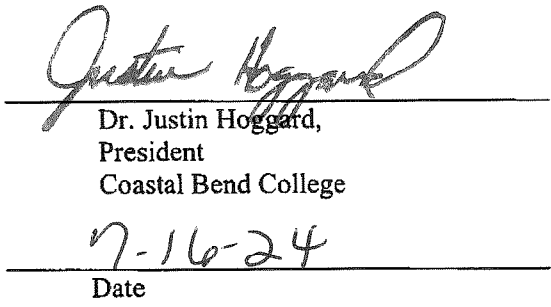 Justin Hoggard
Dr. Justin Hoggard,
President
Coastal Bend College
7-16-24
Date